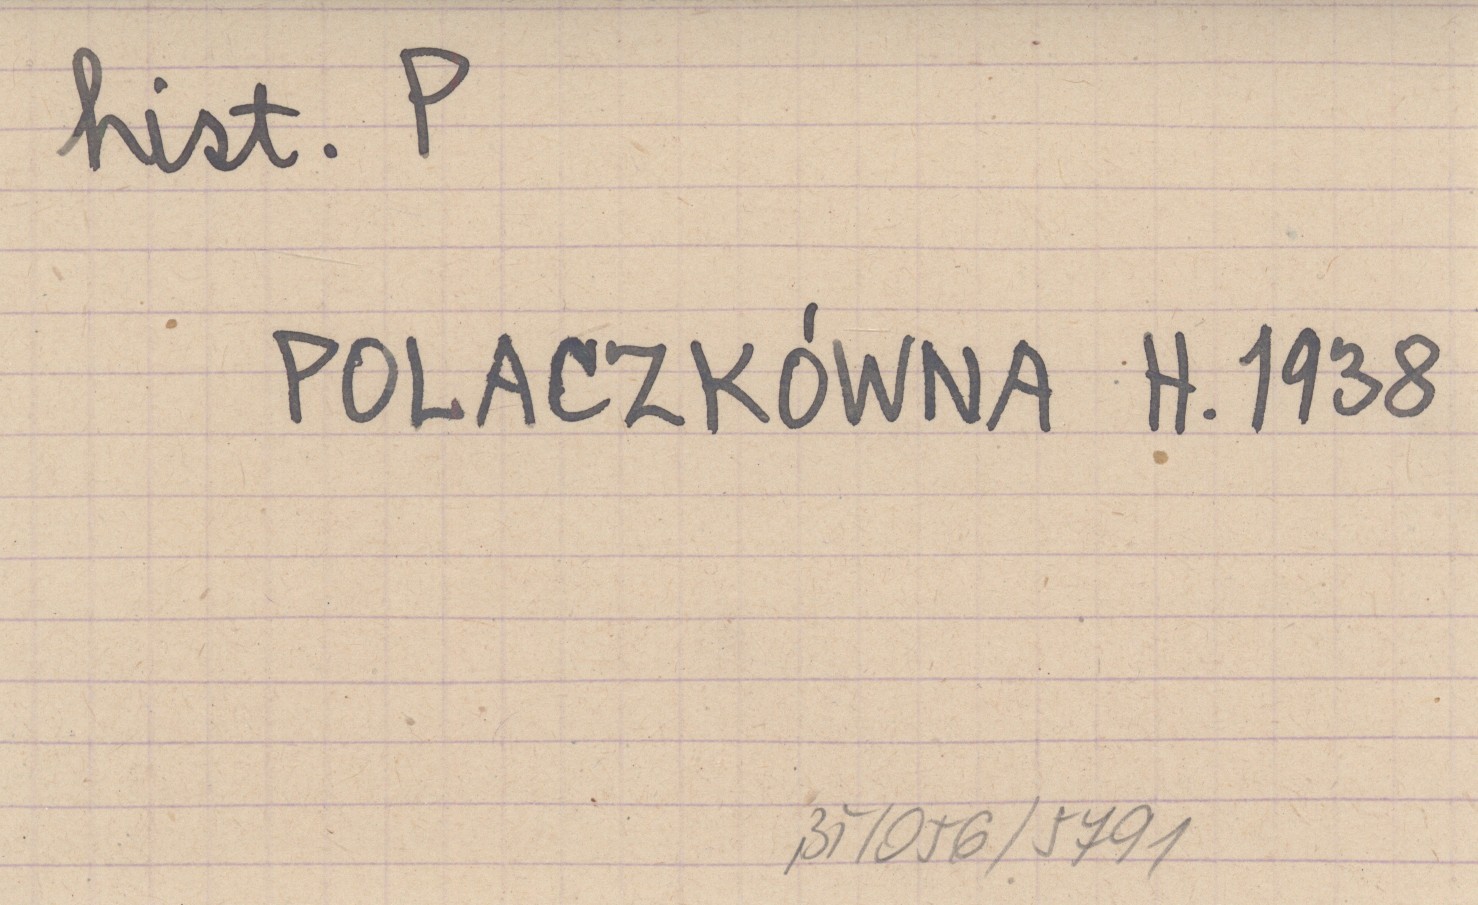 hist. P
POLACZKÓWNA H. 1938
/5791